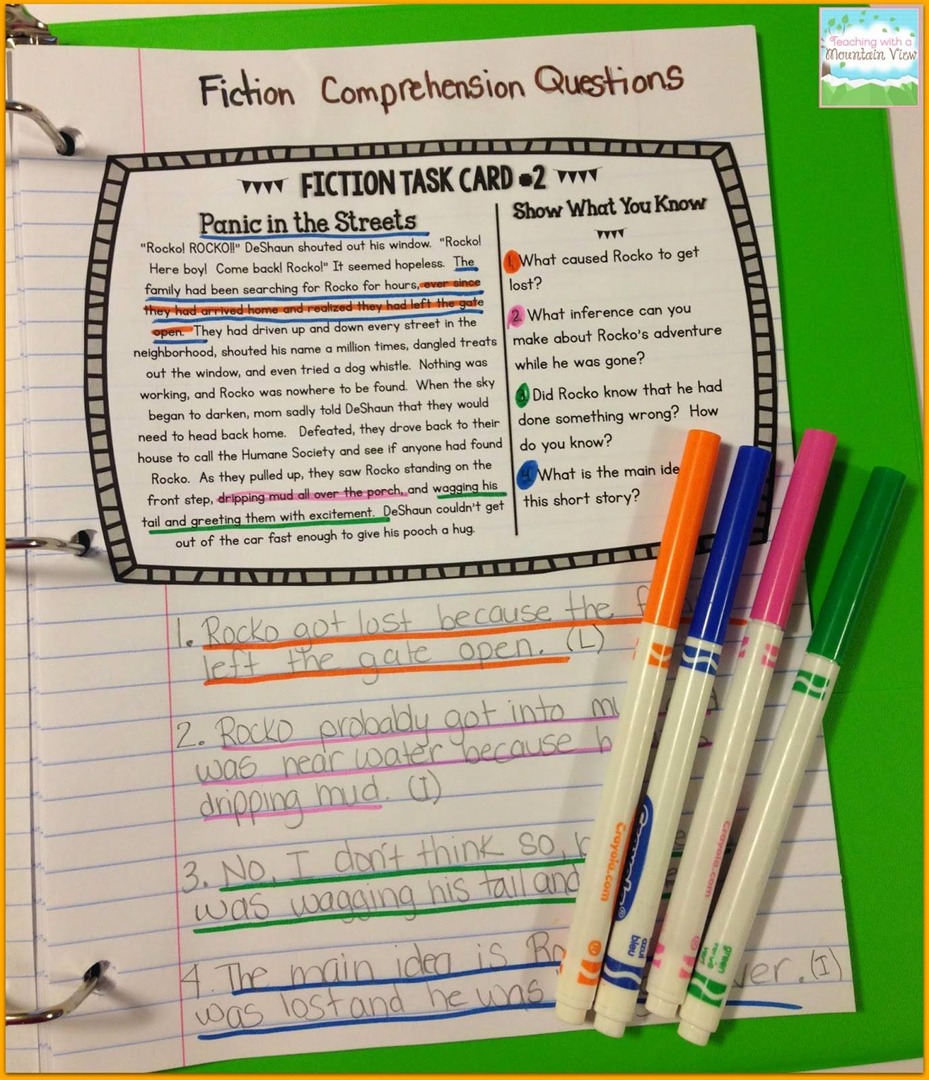 Teaching with a
Mountain View
Fiction Comprehension Questions
FICTION TASK CARD #2
Panic in the Streets
"Rocko! ROCKO!!" DeShaun shouted out his window. "Rocko!
Here boy! Come back! Rocko!" It seemed hopeless. The
family had been searching for Rocko for hours, ever since
they had arrived home and realized they had left the gate
open. They had driven up and down every street in the
neighborhood, shouted his name a million times, dangled treats
out the window, and even tried a dog whistle. Nothing was
working, and Rocko was nowhere to be found. When the sky
began to darken, mom sadly told DeShaun that they would
need to head back home. Defeated, they drove back to their
house to call the Humane Society and see if anyone had found
Rocko. As they pulled up, they saw Rocko standing on the
front step, dripping mud all over the porch, and wagging his
tail and greeting them with excitement. DeShaun couldn't get
out of the car fast enough to give his pooch a hug.
Show What You Know
1. What caused Rocko to get
lost?
2. What inference can you
make about Rocko's adventure
while he was gone?
3. Did Rocko know that he had
done something wrong? How
do you know?
4. What is the main
this short story?
1. Rocko got lost because the
left the gate open. (L)
2. Rocko probably got into
was near water because
dripping mud. (I)
3. No, I don't think so,
was wagging his tail and
4. The main idea is
was lost and he was (I)
Crayola.com
Crayola
azul
bleu
Crayola.com
green
verde
vert